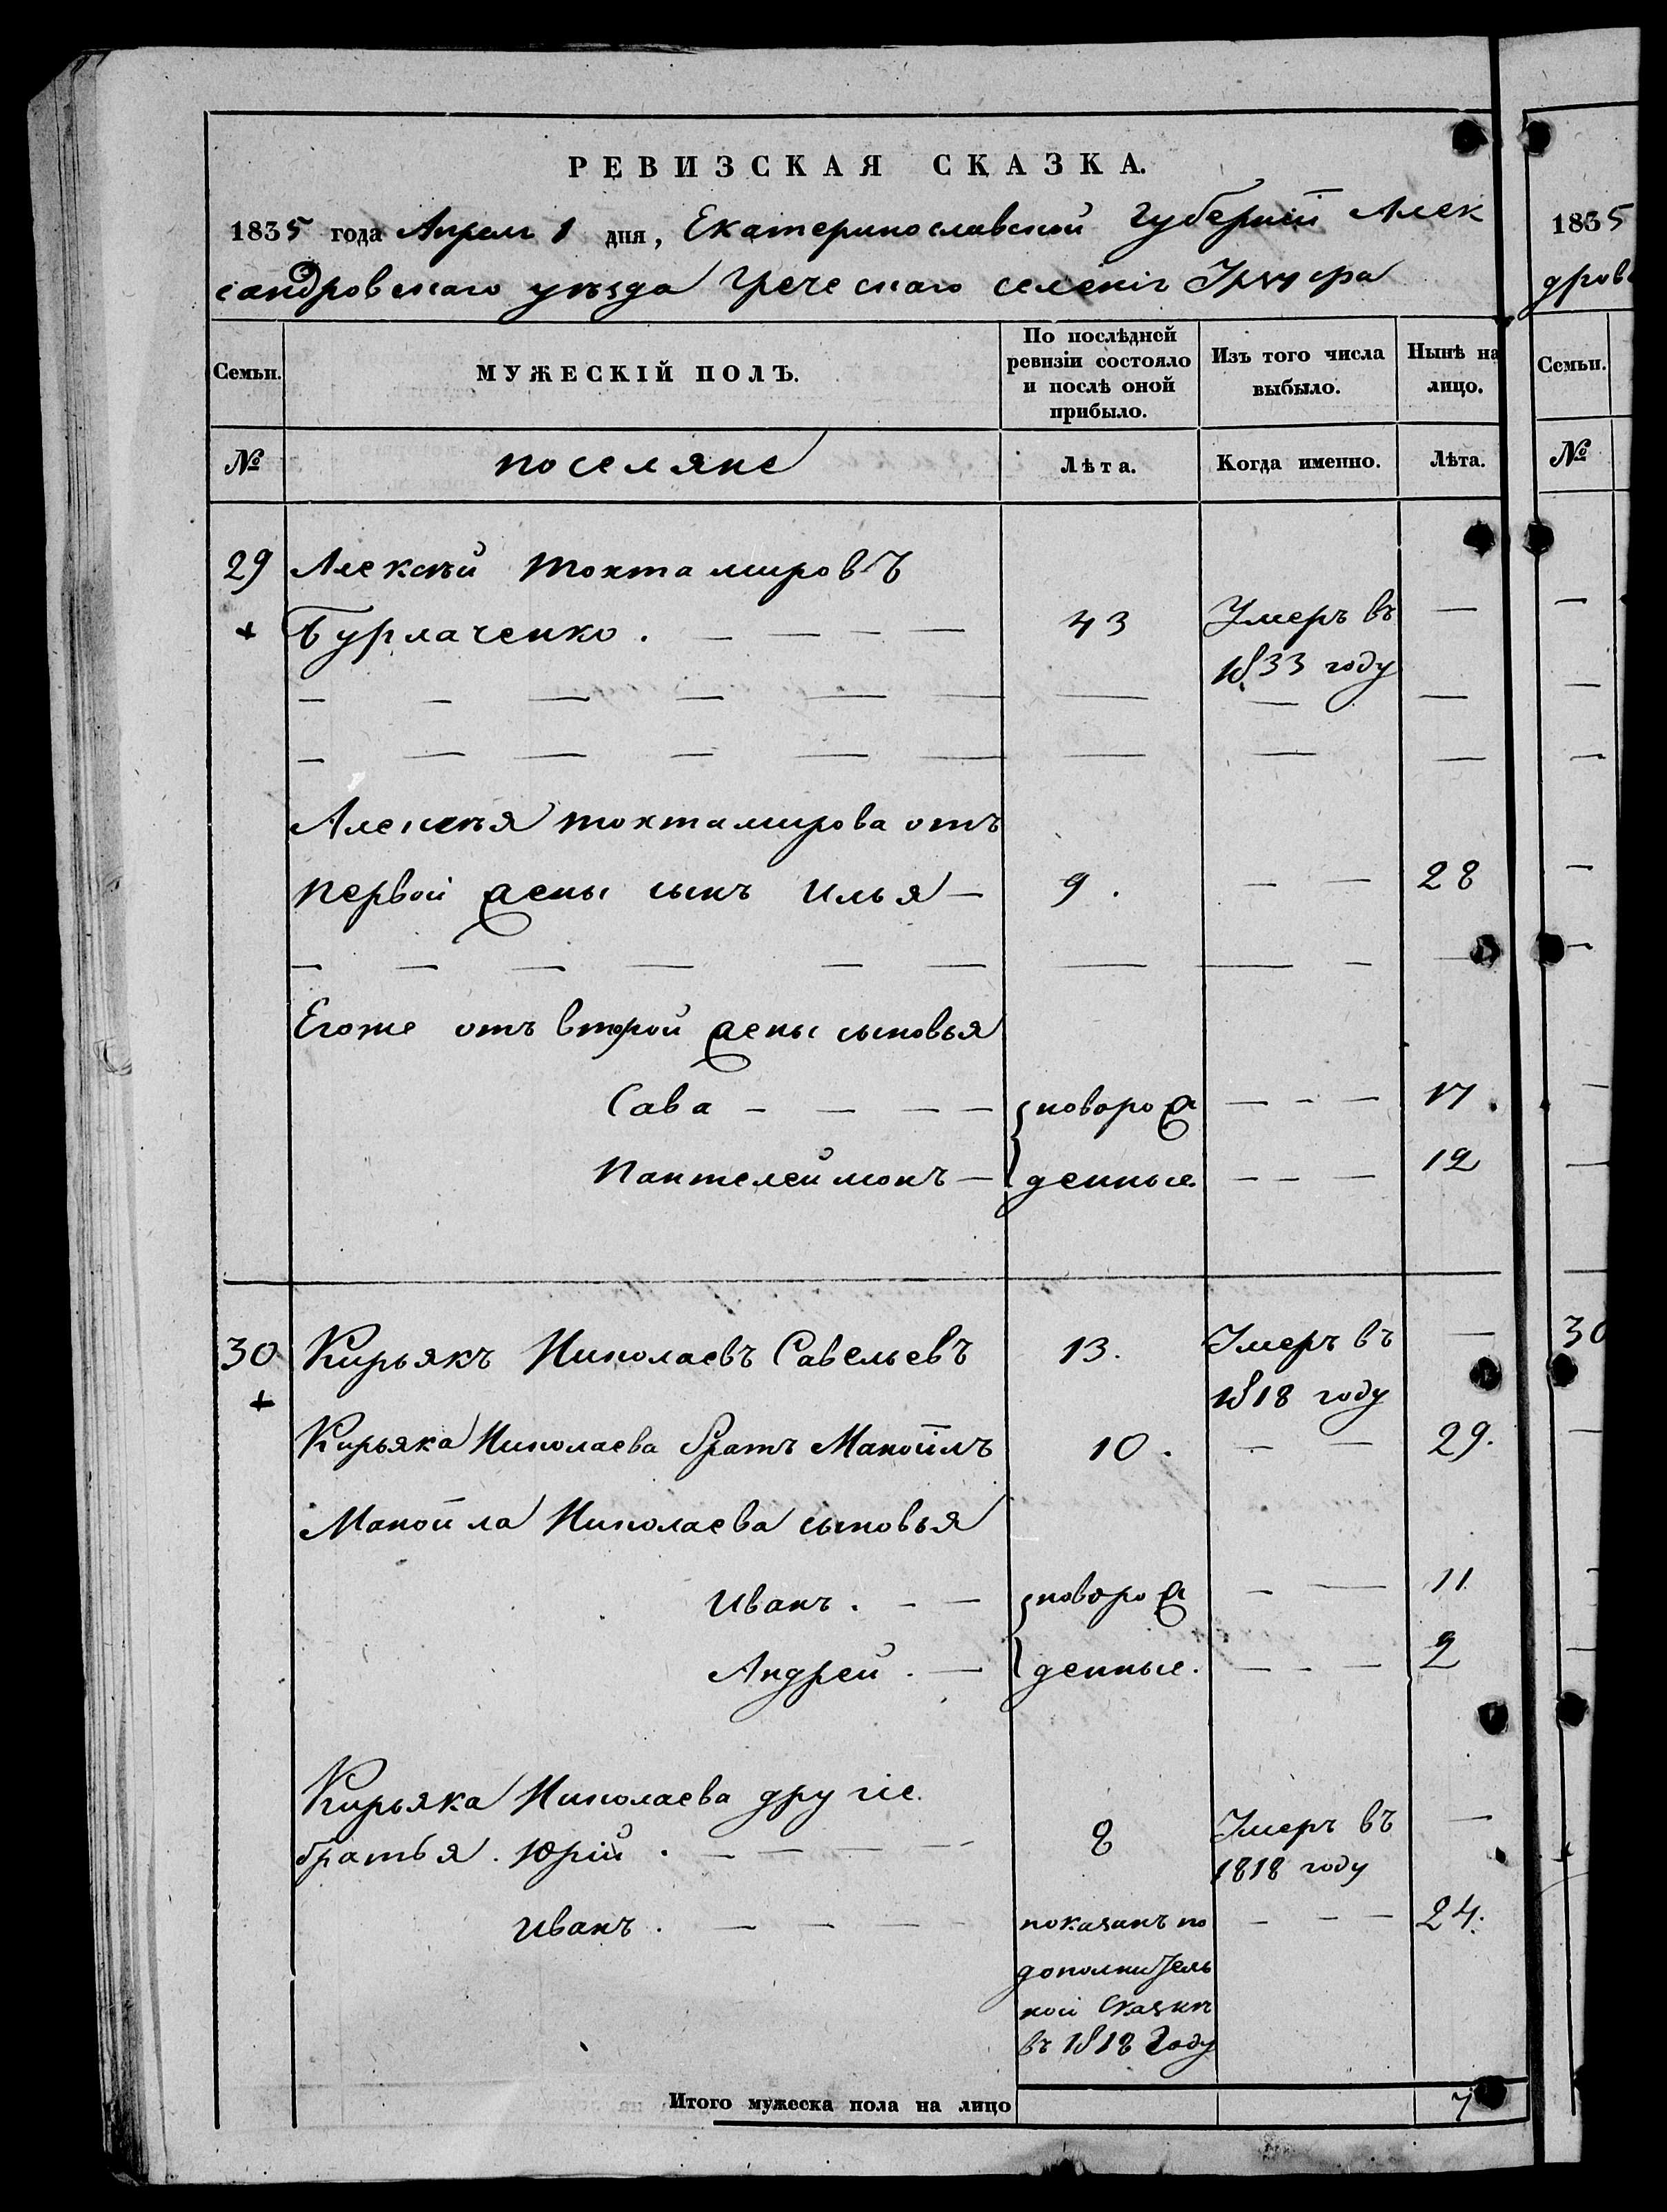 РЕВИЗСКАЯ СКАЗКА.
1835 года Апреля 1 дня, Екатеринославской Губерніи Алек
сандровскаго уѣзда Греческаго селенія
Семьи. МУЖЕСКІЙ ПОЛЪ. По послѣдней ревизіи состояло и послѣ оной прибыло. Изъ того числа выбыло. Нынѣ на лицо.
№ поселяне Лѣта. Когда именно. Лѣта.
29 Алексѣй Тохтамировъ
+ Бурлаченко. — — — — 43 Умеръ въ —
1833 году
Алексѣя тохтамирова отъ
первой жены сынъ Илья — 9. — — 28
Егоже отъ второй жены сыновья
Сава — — — — новорож — - — 17.
Пантелеймонъ — денные. — - — 12
30 Кирьякъ Николаевъ Савельевъ 13. Умеръ въ —
+ 1818 году
Кирьяка Николаева братъ Манойлъ 10. — — 29.
Манойла Николаева сыновья
Иванъ. - — новорож — — 11.
Андрей. — денные. — - — 2
Кирьяка Николаева другіе
братья. Юрій. — — — — 8 Умеръ въ —
1818 году
Иванъ. — — — — показанъ по — - — 24.
дополнитель
ной сказкѣ
въ 1818 Году
Итого мужеска пола на лицо 7
1835
дров
Семьи.
№
30